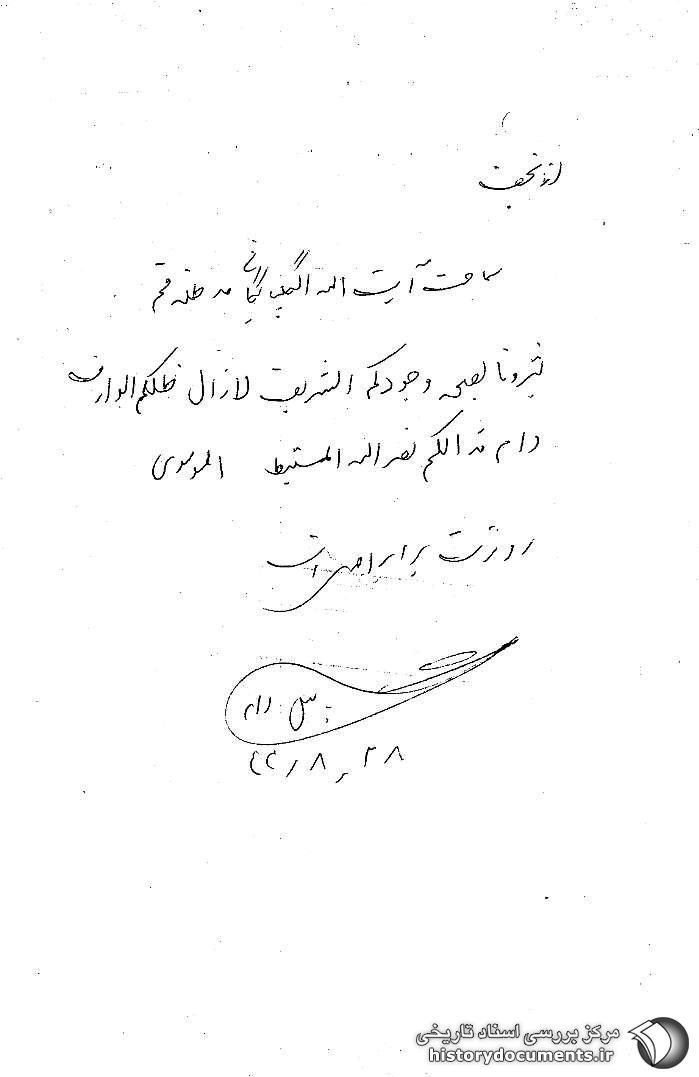 از نجف
سماحت آیت الله الگلپایگانی مد ظله قم
بشرونا بصحه وجودکم الشریف لازال ظلکم الوارف
دام نصر الله المستنبط الموسوی
رونوشت برابر اصل است
۲۸ / ۸ / ۴۴
مرکز بررسی اسناد تاریخی
historydocuments.ir